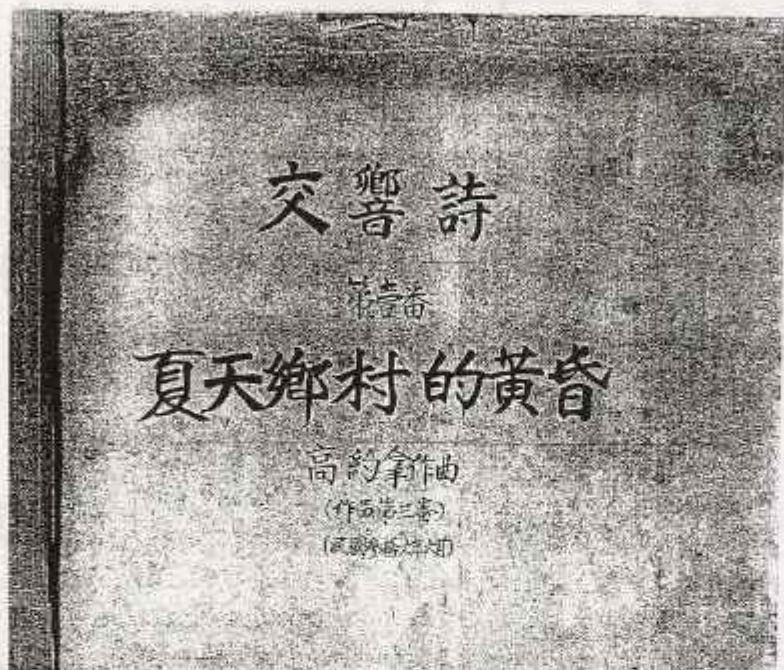 交響詩
第壹番
夏天鄉村的黃昏
高約拿作曲
(作品第三番)